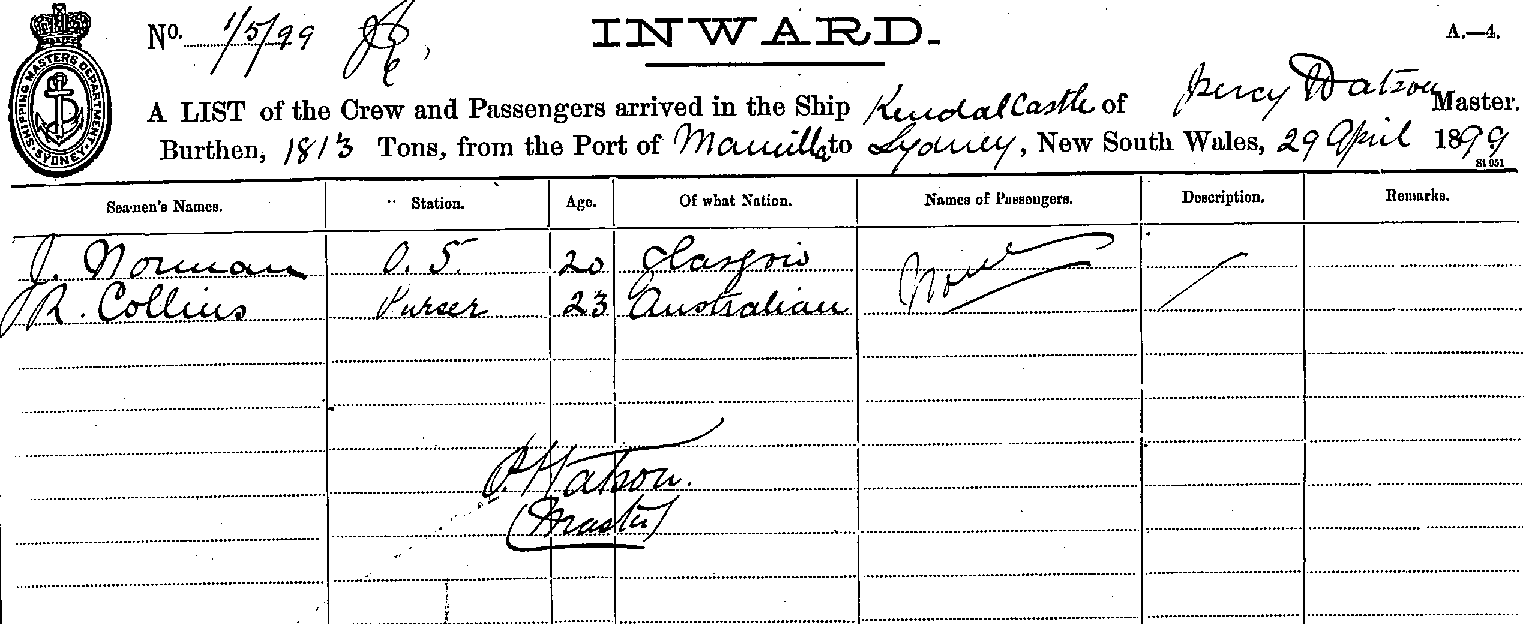 No. 1/5/99
INWARD.
A.—4.
SHIPPING MASTERS DEPARTMENT. SYDNEY
A LIST of the Crew and Passengers arrived in the Ship Kendal Castle of Percy Watson Master.
Burthen, 1813 Tons, from the Port of Manilla to Sydney, New South Wales, 29 April 1899
St 051
Seamen's Names. Station. Age. Of what Nation. Names of Passengers. Description. Remarks.
J. Norman O.S. 20 Glasgow None
R. Collins Purser 23 Australian
P. Watson.
(Master)